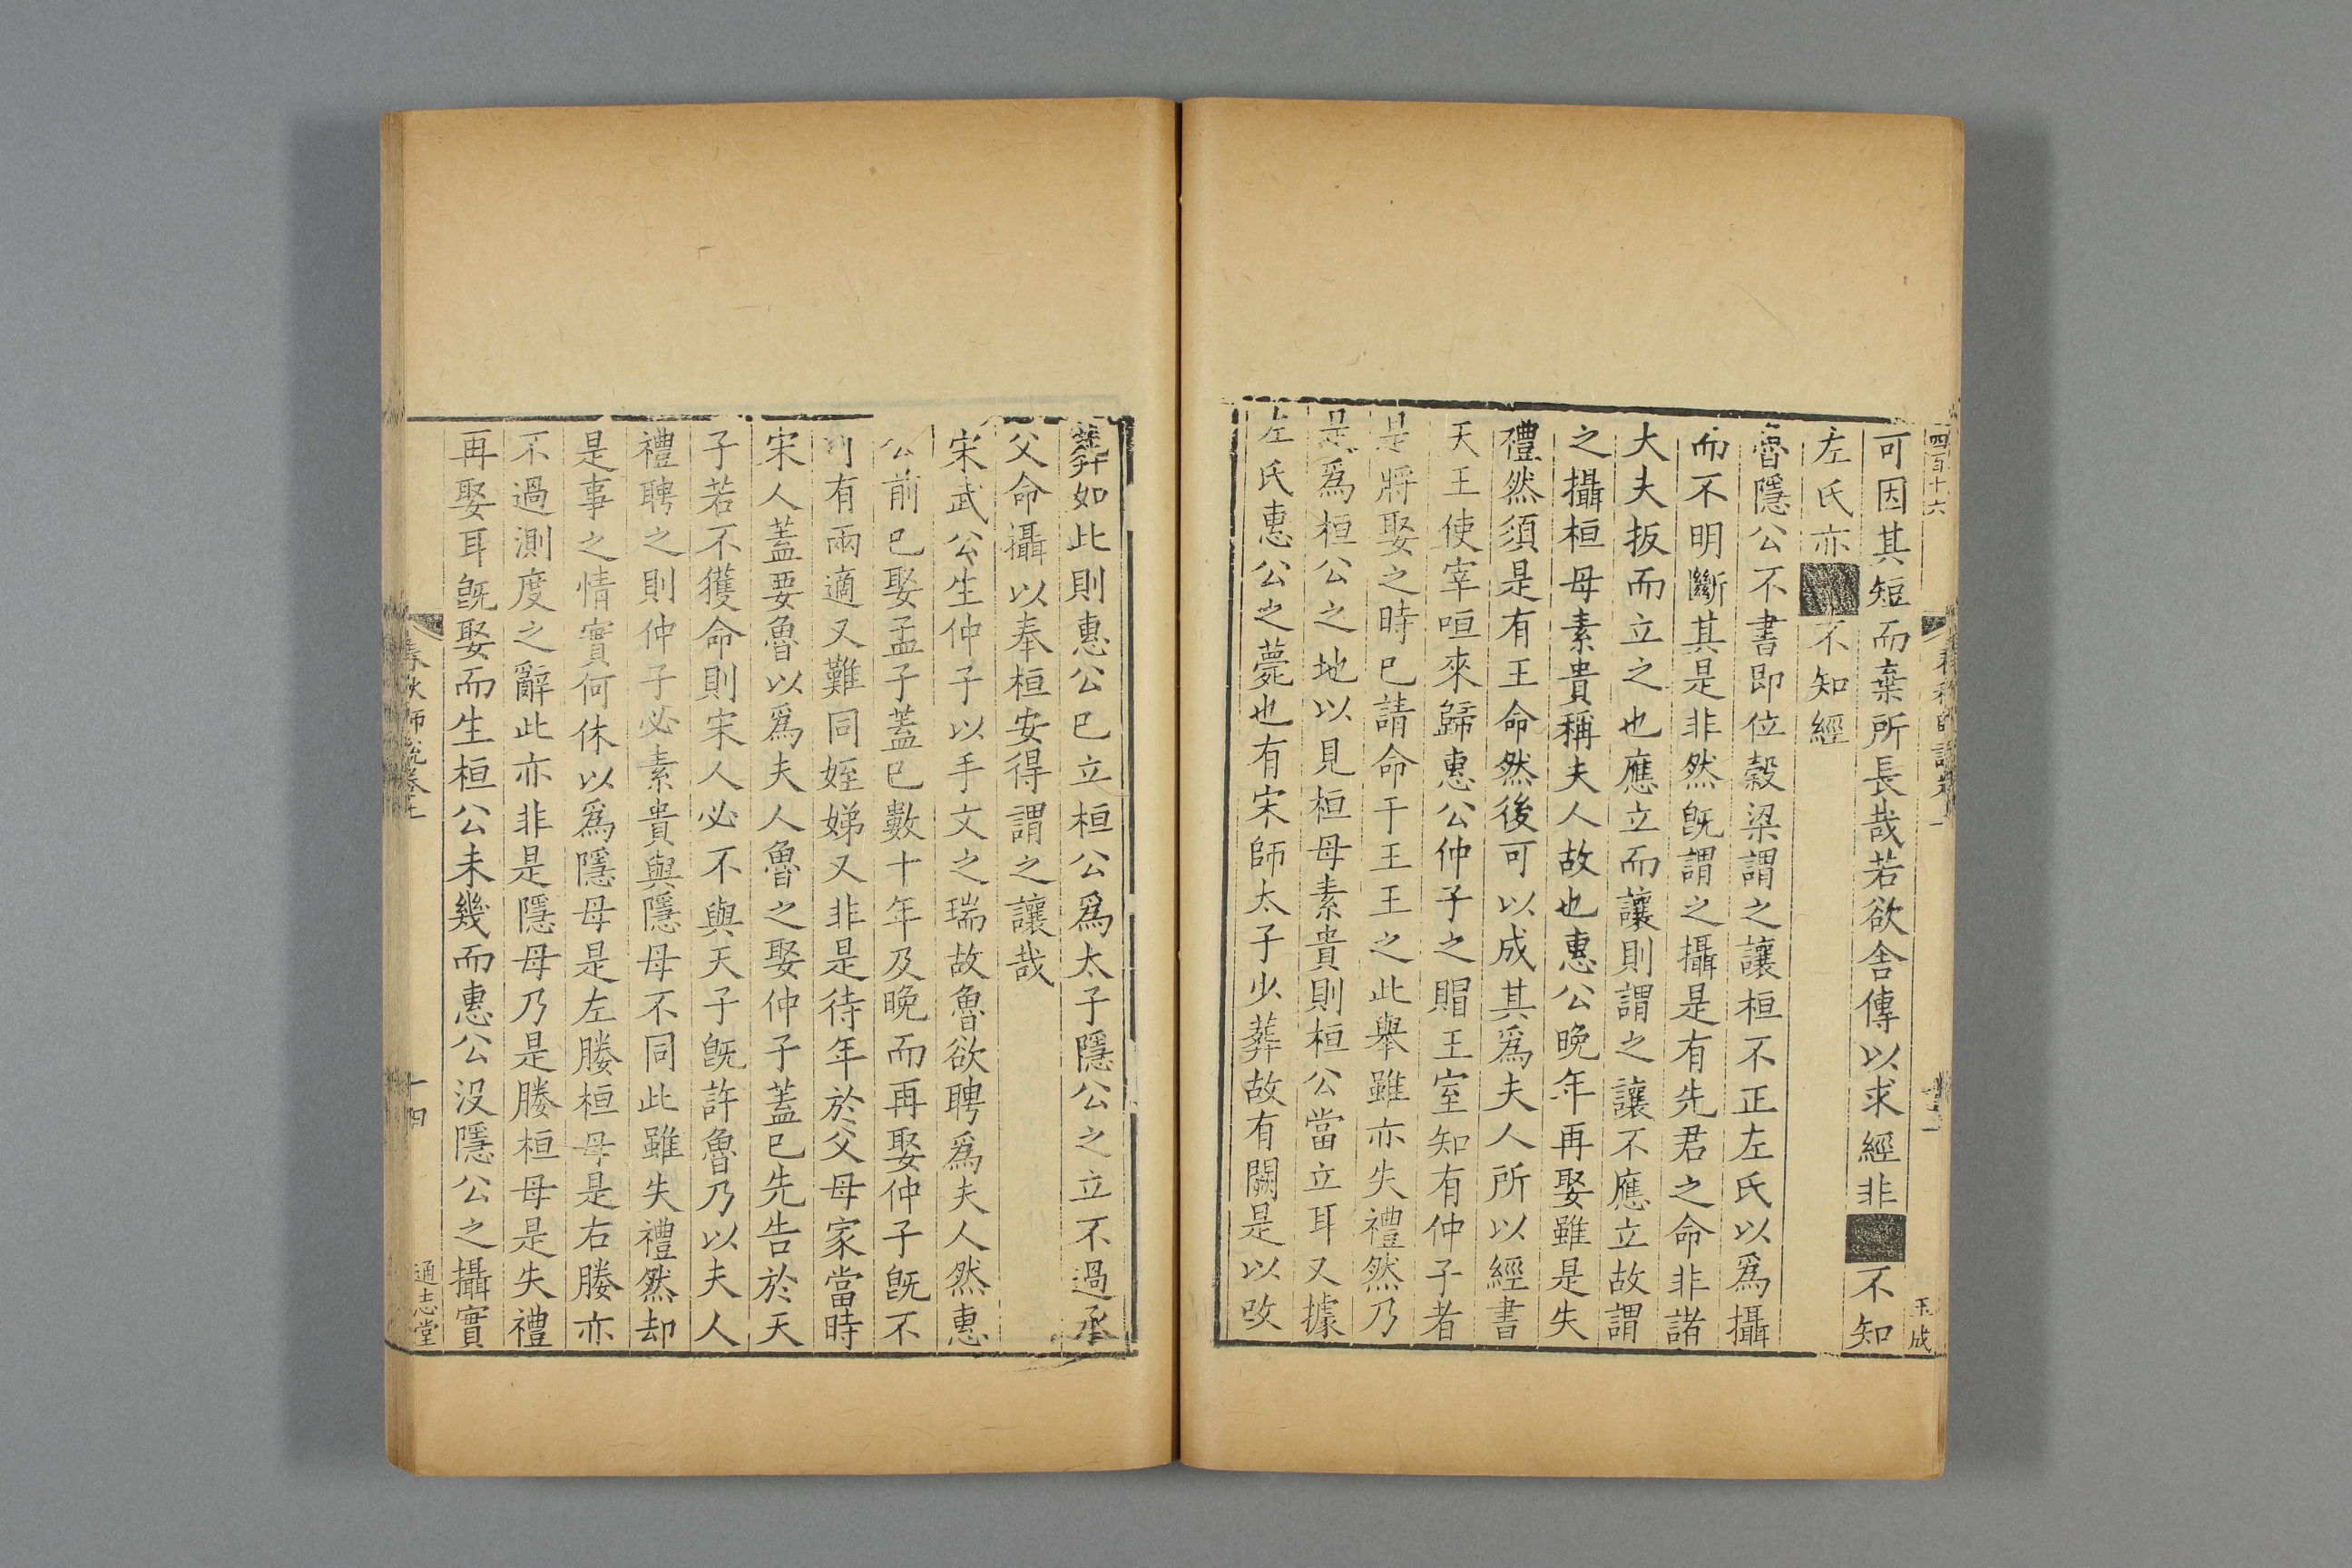 四百十六
玉成
可因其短而棄所長哉若欲舍傳以求經非不知
左氏亦不知經
魯隱公不書即位穀梁謂之讓桓不正左氏以爲攝
而不明斷其是非然旣謂之攝是有先君之命非諸
大夫扳而立之也應立而讓則謂之讓不應立故謂
之攝桓母素貴稱夫人故也惠公晚年再娶雖是失
禮然須是有王命然後可以成其爲夫人所以經書
天王使宰咺來歸惠公仲子之賵王室知有仲子者
是將娶之時已請命于王王之此舉雖亦失禮然乃
是爲桓公之地以見桓母素貴則桓公當立耳又據
左氏惠公之薨也有宋師太子少葬故有闕是以改
葬如此則惠公已立桓公爲太子隱公之立不過承
父命攝以奉桓安得謂之讓哉
宋武公生仲子以手文之瑞故魯欲聘爲夫人然惠
公前已娶孟子蓋已數十年及晚而再娶仲子旣不
可有兩適又難同姪娣又非是待年於父母家當時
宋人蓋要魯以爲夫人魯之娶仲子蓋已先告於天
子若不獲命則宋人必不與天子旣許魯乃以夫人
禮聘之則仲子必素貴與隱母不同此雖失禮然却
是事之情實何休以爲隱母是左媵桓母是右媵亦
不過測度之辭此亦非是隱母乃是媵桓母是失禮
再娶耳旣娶而生桓公未幾而惠公沒隱公之攝實
春秋師說卷上
十四
通志堂